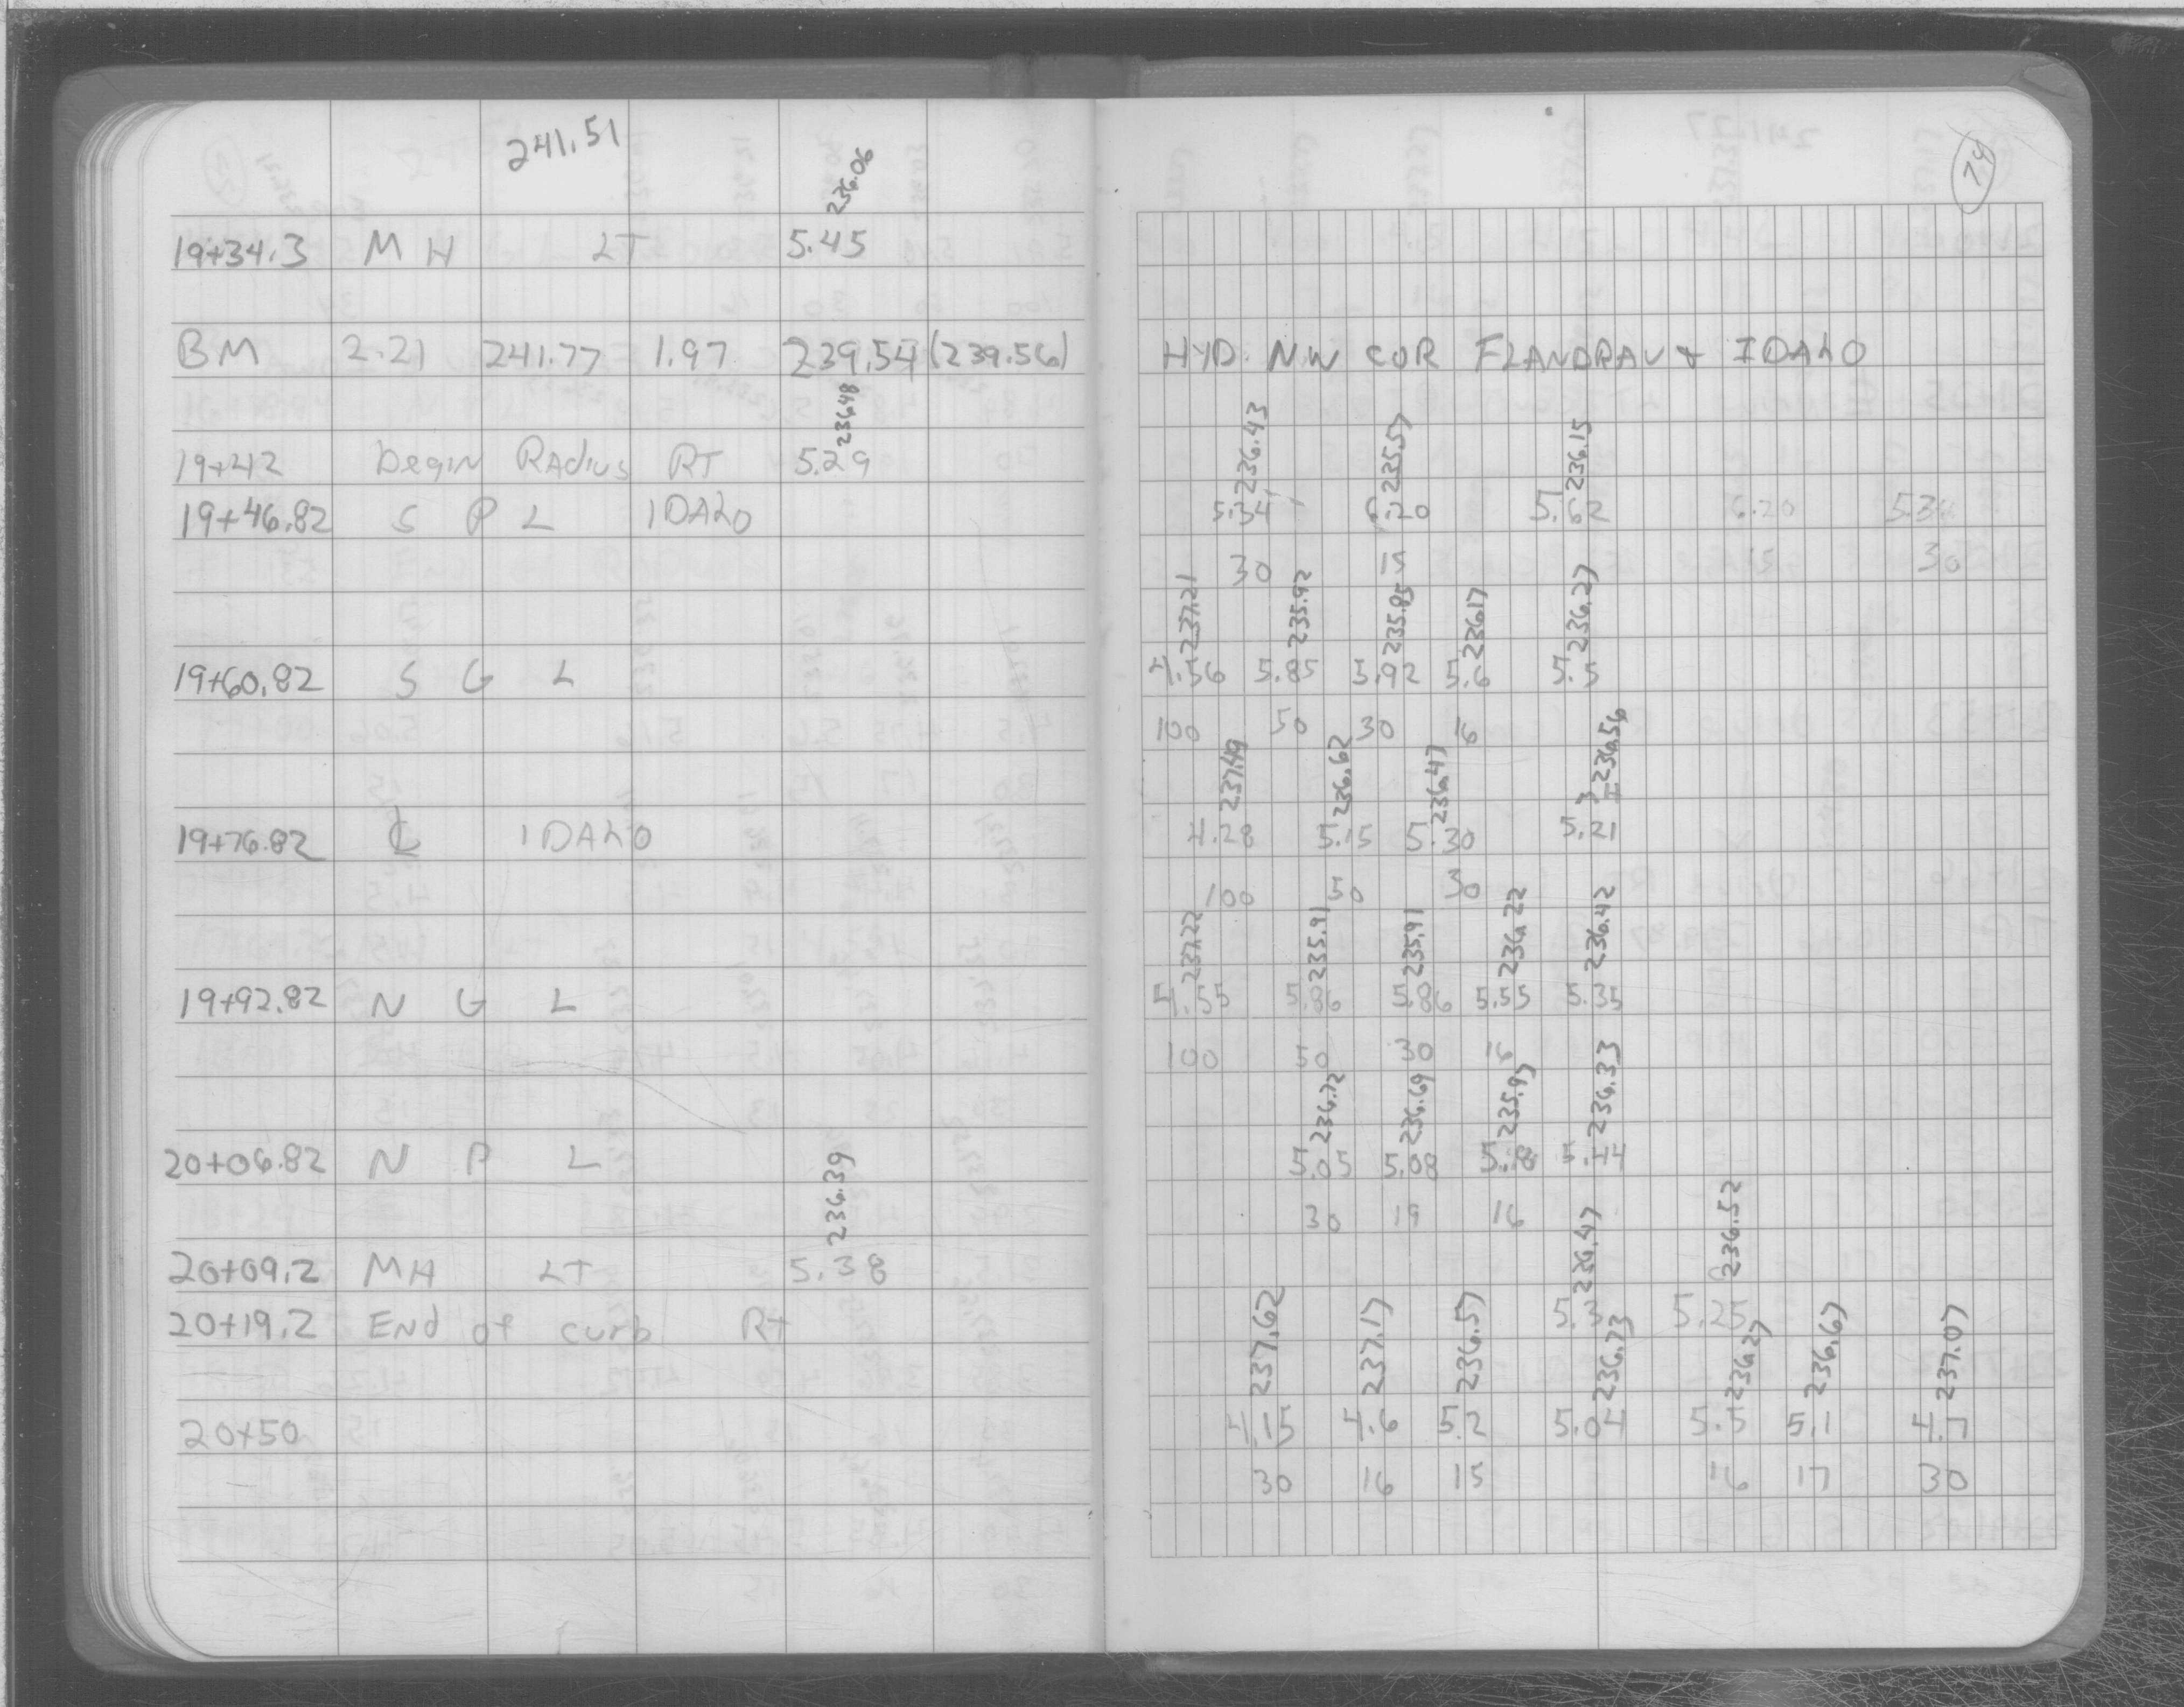 241.51
236.06
19+34.3 MH LT 5.45
BM 2.21 241.77 1.97 239.54 (239.56)
236.48
19+42 Begin Radius RT 5.29
19+46.82 S P L IDAHO
19+60.82 S G L
19+76.82 ℄ IDAHO
19+92.82 N G L
20+06.82 N P L
236.39
20+09.2 MH LT 5.38
20+19.2 End of curb Rt
20+50
24
HYD. NW COR FLANDRAU & IDAHO
236.43 235.57 236.15
5.34 6.20 5.62 6.20
30 15 15 30
237.21 235.92 235.85 236.17 236.27
4.56 5.85 5.92 5.6 5.5
100 50 30 16
237.49 236.62 236.47 236.56
4.28 5.15 5.30 5.21
100 50 30
237.22 235.91 235.91 236.22 236.42
4.55 5.86 5.86 5.55 5.35
100 50 30 16
236.72 236.69 235.97 236.33
5.05 5.08 5.8 5.44
30 16
236.47 236.52
5.3 5.25
237.62 237.17 236.57 236.73 236.27 236.67 237.07
4.15 4.6 5.2 5.04 5.5 5.1 4.7
30 16 15 16 17 30